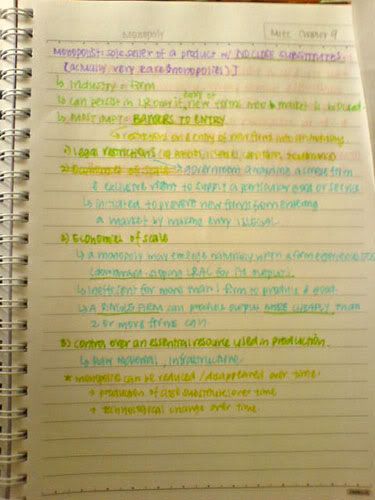 Monopoly
Chapter 9
MONOPOLIST: sole seller of a product w/ NO CLOSE SUBSTITUTES.
[actually very rare (monopolies)]
↳ Industry = firm
↳ can persist in LR only if entry of new firms into market is blocked
↳ MOST IMPT: BARRIERS TO ENTRY
↳ restrictions on entry of new firms into an industry.
1) Legal restrictions
2) Economies of scale → government a single firm
& exclusive right to supply a particular good or service
↳ initiated to prevent new firms from entering
a market by making entry ILLEGAL.
2) Economies of scale
↳ a monopoly may emerge naturally when a firm experiences
(downward-sloping LRAC for its output).
↳ inefficient for more than 1 firm to produce a good.
↳ A SINGLE FIRM can produce output MORE CHEAPLY than
2 or more firms can
3) control over an essential resource used in production.
↳ Raw material, infrastructure
* monopolies can be reduced / disappeared over time
→ production of close substitutes over time
→ technological change over time.